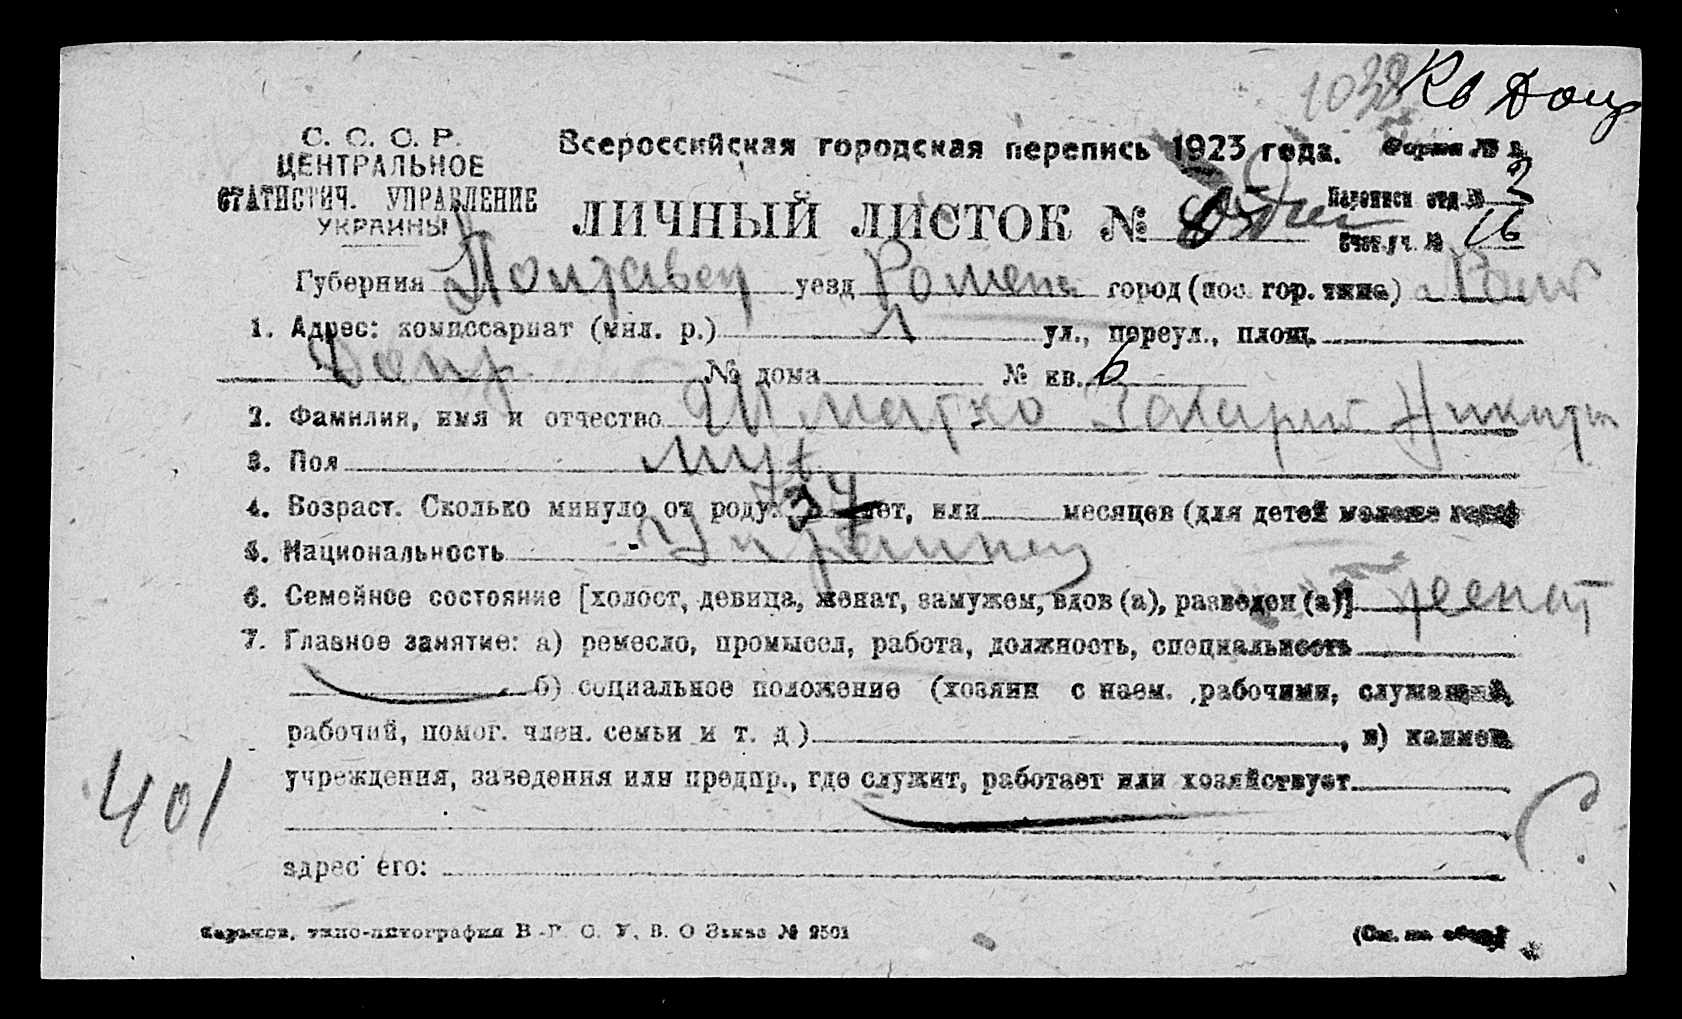 1038 Ко Допр
С. С. С. Р.
ЦЕНТРАЛЬНОЕ
СТАТИСТИЧ. УПРАВЛЕНИЕ
УКРАИНЫ
Всероссийская городская перепись 1923 года. Форма № 2.
ЛИЧНЫЙ ЛИСТОК №
Переписн отд. № 3
Счетн.уч. № 16
Губерния Полтавск уезд Ромен город (пос. гор. типа)
1. Адрес: комиссариат (мил. р.) 1 ул., переул., площ.
Допр № дома № кв. 6
2. Фамилия, имя и отчество Шматко Захарий Никит
3. Пол муж
4. Возраст. Сколько минуло от роду: 34 лет, или месяцев (для детей моложе года)
5. Национальность Украинец
6. Семейное состояние [холост, девица, женат, замужем, вдов (а), разведен (а)] женат
7. Главное занятие: а) ремесло, промысел, работа, должность, специальность
б) социальное положение (хозяин с наем. рабочими, служащий,
рабочий, помог. член. семьи и т. д.) , в) наимен.
учреждения, заведения или предпр., где служит, работает или хозяйствует
401
адрес его:
Харьков, типо-литография В. О Заказ № 2501
(См. на обор.)